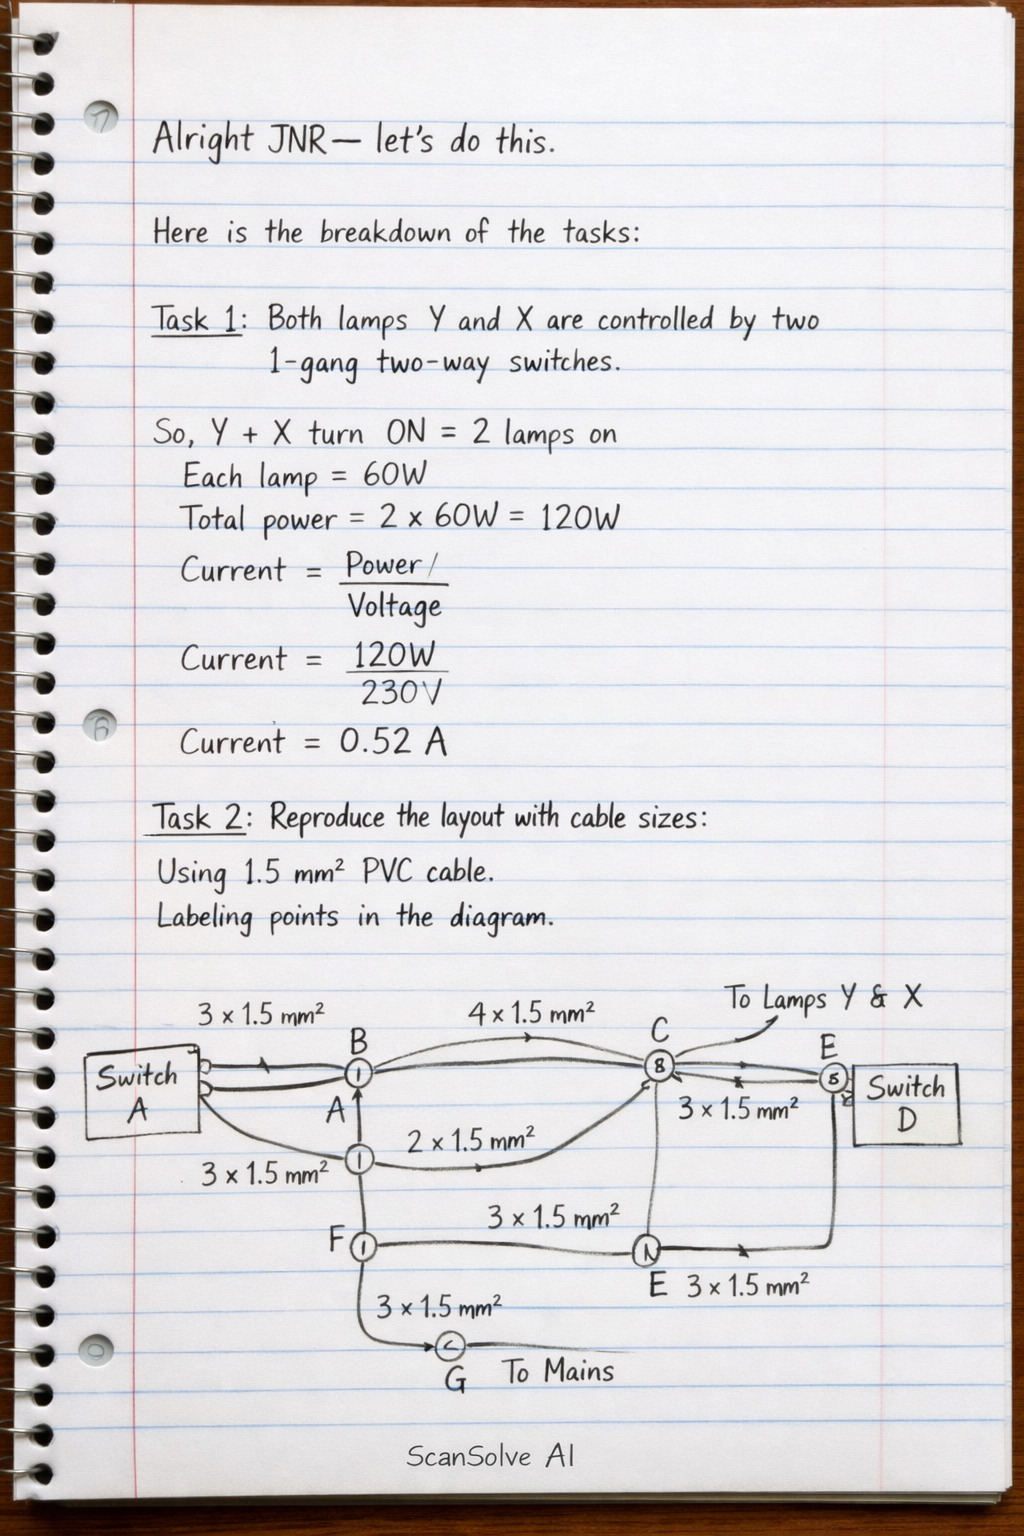 Alright JNR— let's do this.
Here is the breakdown of the tasks:
Task 1: Both lamps Y and X are controlled by two
1-gang two-way switches.
So, Y + X turn ON = 2 lamps on
Each lamp = 60W
Total power = 2 x 60W = 120W
Current = Power/
Voltage
Current = 120W
230V
Current = 0.52 A
Task 2: Reproduce the layout with cable sizes:
Using 1.5 mm² PVC cable.
Labeling points in the diagram.
To Lamps Y & X
3 x 1.5 mm²
4 x 1.5 mm²
B
C
E
Switch
A
1
8
Switch
D
A
3 x 1.5 mm²
2 x 1.5 mm²
1
3 x 1.5 mm²
3 x 1.5 mm²
F
1
E
3 x 1.5 mm²
3 x 1.5 mm²
G
To Mains
ScanSolve AI